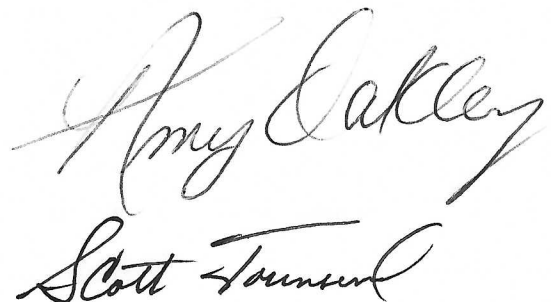 Amy Oakley
Scott Townsend